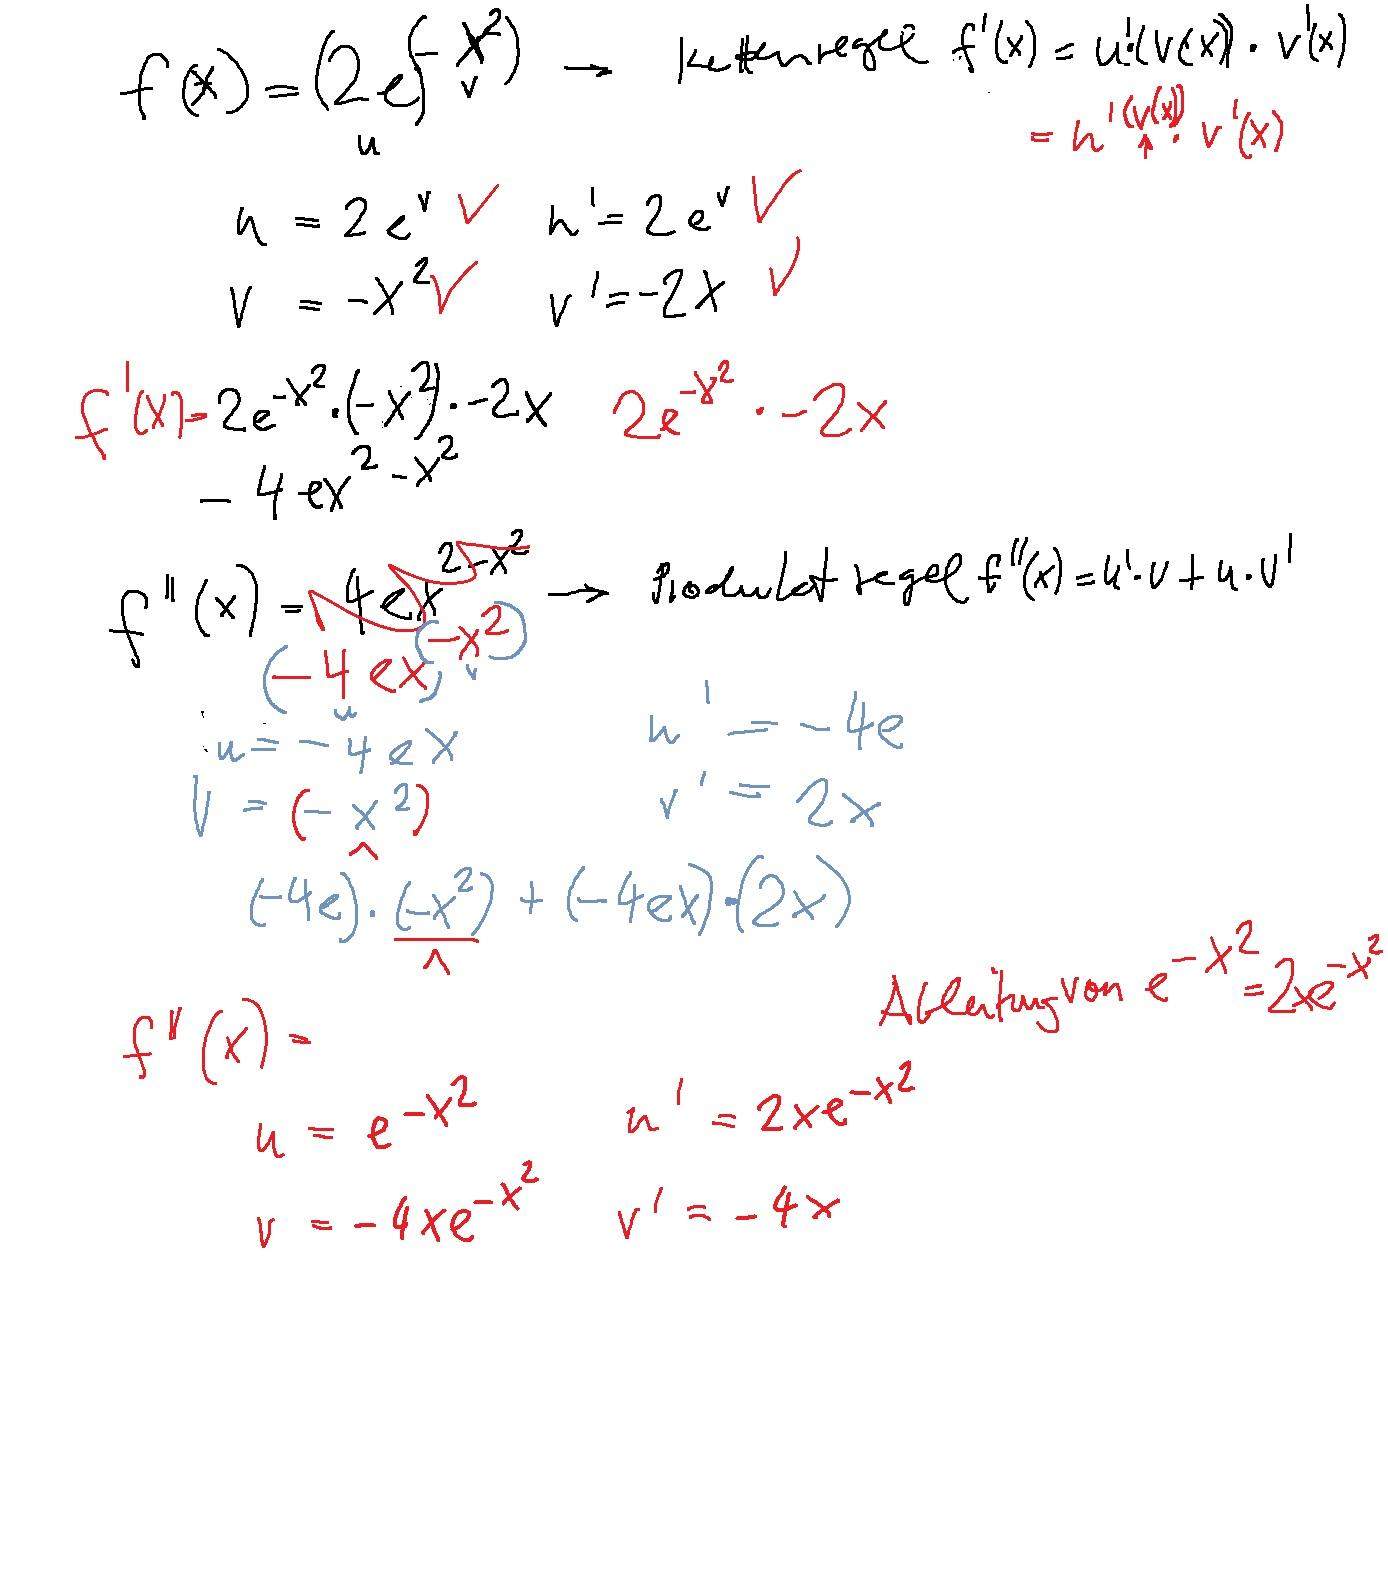 f(x) = (2e)(-x²) → Kettenregel f'(x) = u'·(v(x)) · v'(x)
u v
= u'(v(x)) · v'(x)
u = 2e^v ✓ u' = 2e^v ✓
v = -x² ✓ v' = -2x ✓
f'(x) = 2e^-x² · (-x²) · -2x 2e^-x² · -2x
- 4ex^2-x²
f''(x) = 4ex^2-x² → Produktregel f''(x) = u'·v + u·v'
(-4ex)(-x²)
u v
u = -4ex u' = -4e
v = (-x²) v' = 2x
^
(-4e)·(-x²) + (-4ex)·(2x)
^
Ableitung von e^-x² = 2xe^-x²
f''(x) =
u = e^-x² u' = 2xe^-x²
v = -4xe^-x² v' = -4x